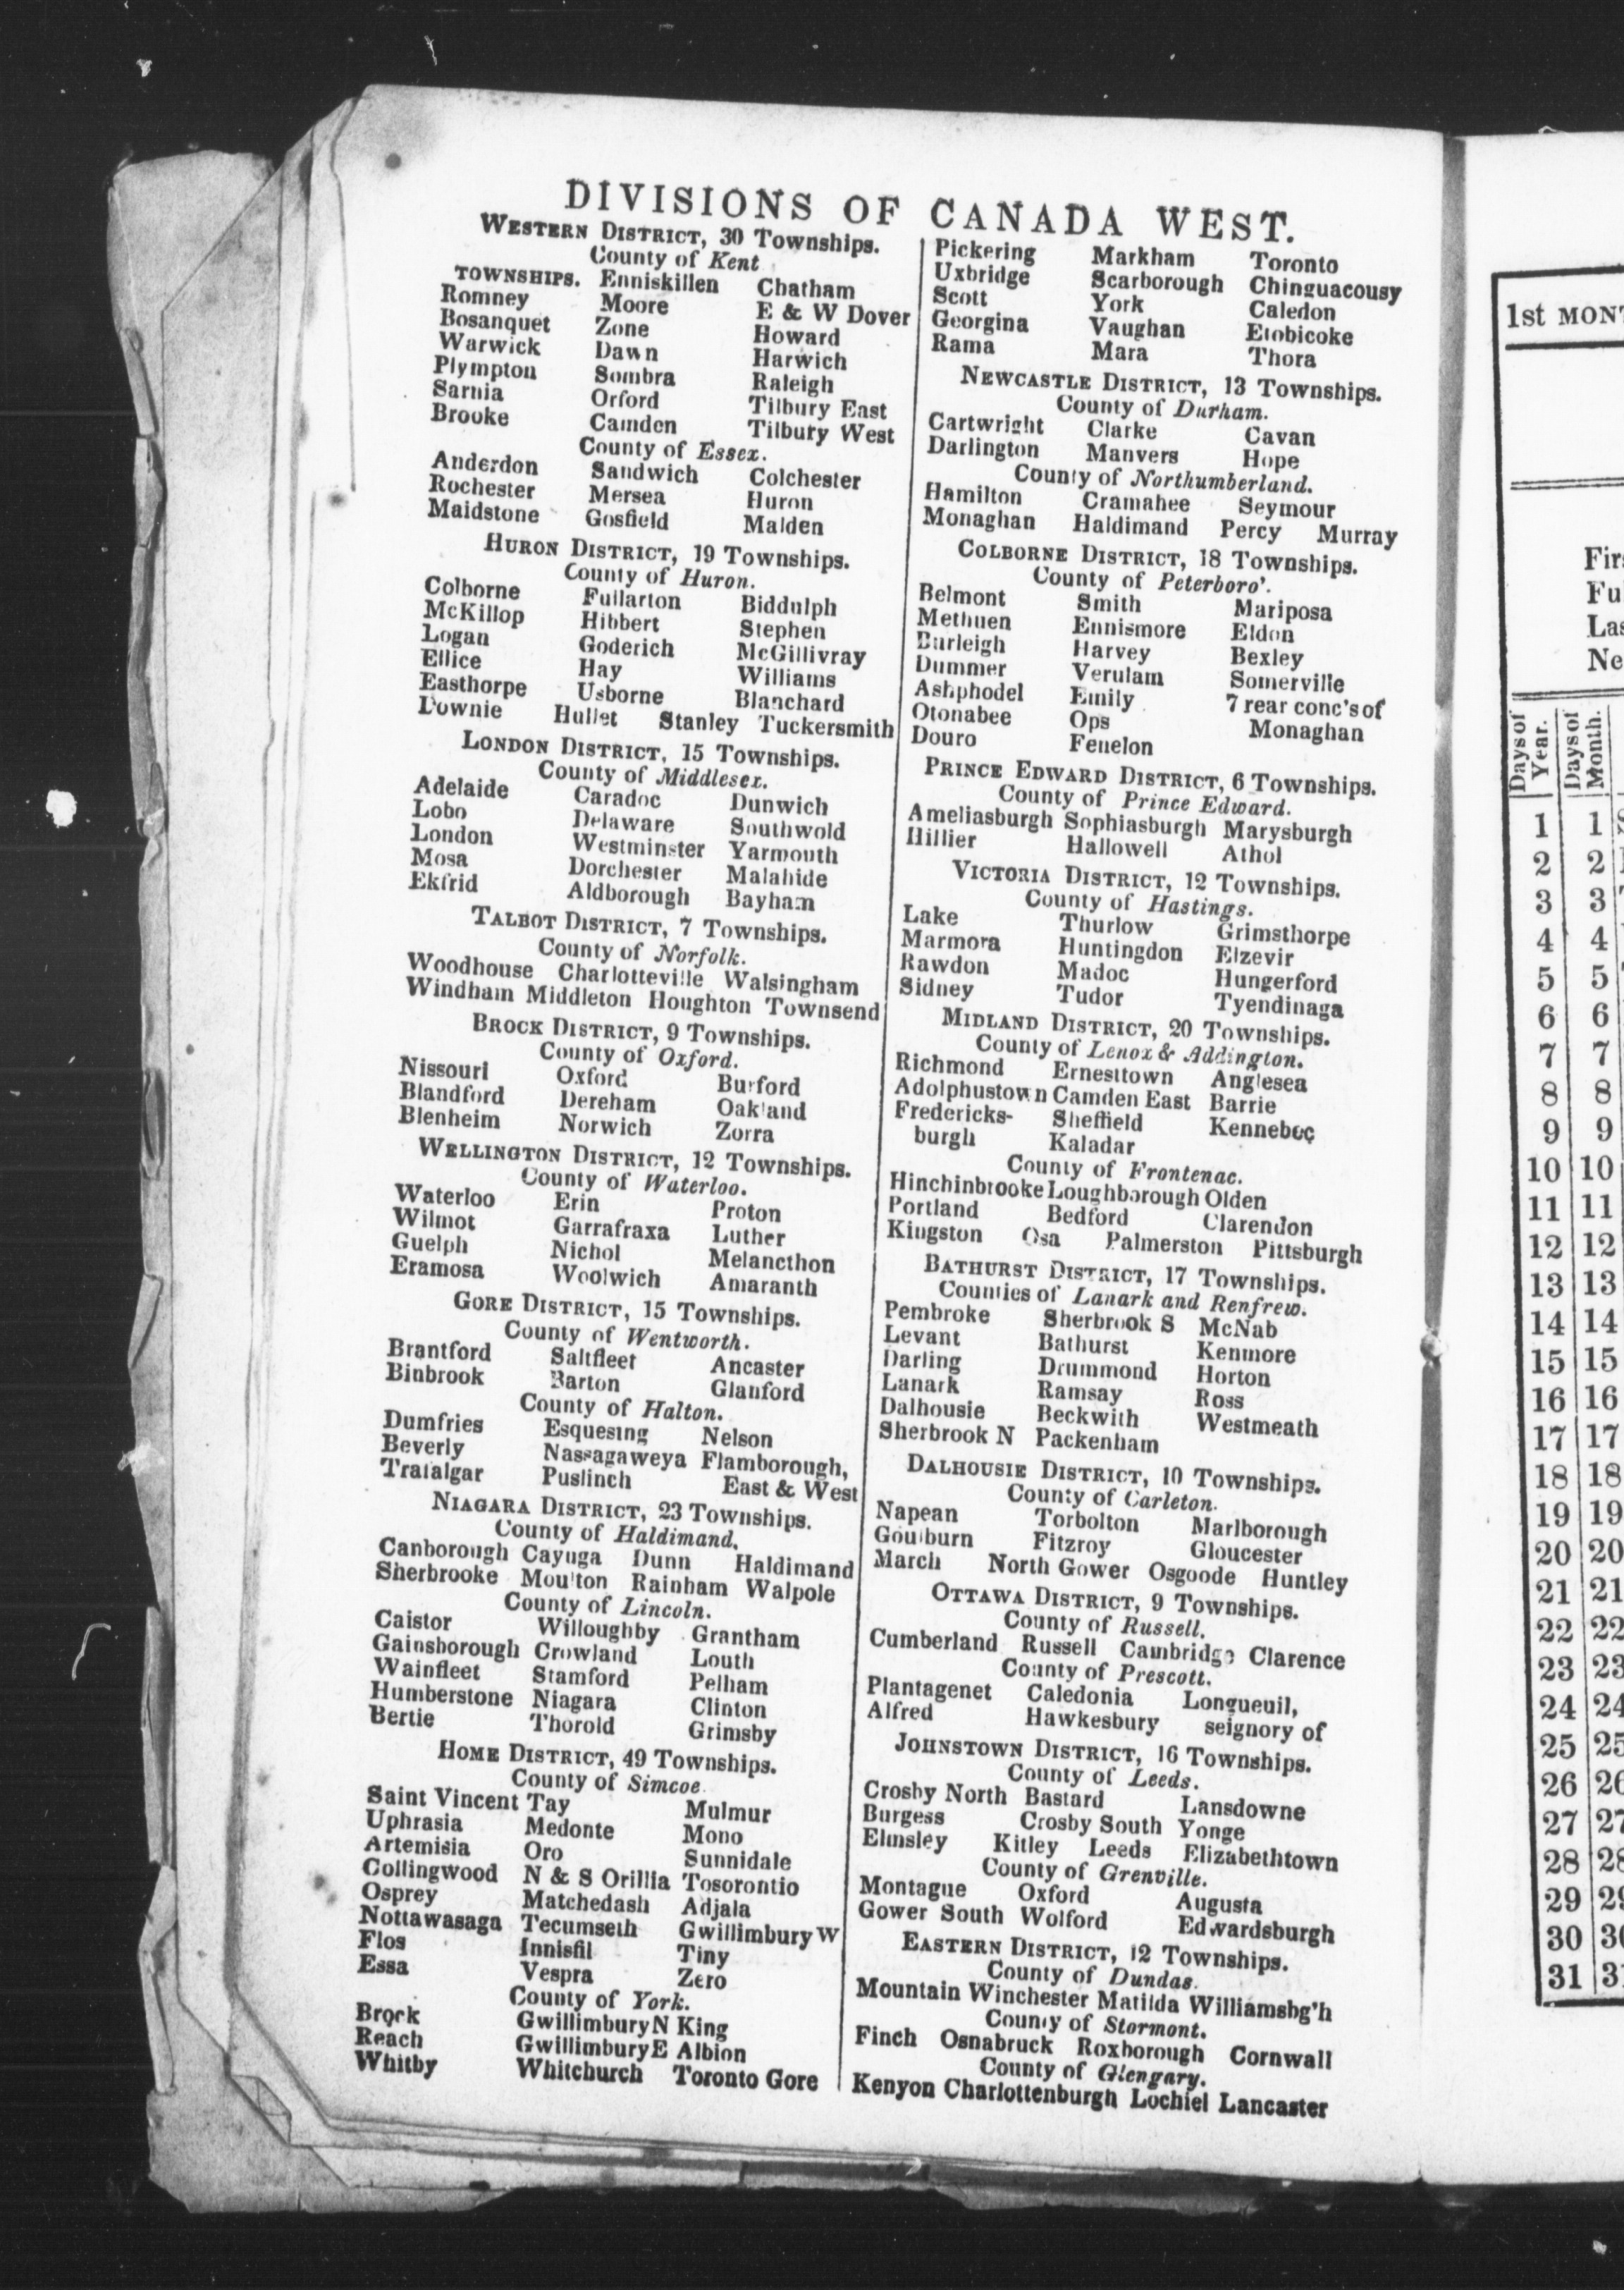 DIVISIONS OF CANADA WEST.
WESTERN DISTRICT, 30 Townships.
County of Kent
TOWNSHIPS. Enniskillen Chatham
Romney Moore E & W Dover
Bosanquet Zone Howard
Warwick Dawn Harwich
Plympton Sombra Raleigh
Sarnia Orford Tilbury East
Brooke Camden Tilbury West
County of Essex.
Anderdon Sandwich Colchester
Rochester Mersea Huron
Maidstone Gosfield Malden
HURON DISTRICT, 19 Townships.
County of Huron.
Colborne Fullarton Biddulph
McKillop Hibbert Stephen
Logan Goderich McGillivray
Ellice Hay Williams
Easthorpe Usborne Blanchard
Downie Hullet Stanley Tuckersmith
LONDON DISTRICT, 15 Townships.
County of Middlesex.
Adelaide Caradoc Dunwich
Lobo Delaware Southwold
London Westminster Yarmouth
Mosa Dorchester Malahide
Ekfrid Aldborough Bayham
TALBOT DISTRICT, 7 Townships.
County of Norfolk.
Woodhouse Charlotteville Walsingham
Windham Middleton Houghton Townsend
BROCK DISTRICT, 9 Townships.
County of Oxford.
Nissouri Oxford Burford
Blandford Dereham Oakland
Blenheim Norwich Zorra
WELLINGTON DISTRICT, 12 Townships.
County of Waterloo.
Waterloo Erin Proton
Wilmot Garrafraxa Luther
Guelph Nichol Melancthon
Eramosa Woolwich Amaranth
GORE DISTRICT, 15 Townships.
County of Wentworth.
Brantford Saltfleet Ancaster
Binbrook Barton Glanford
County of Halton.
Dumfries Esquesing Nelson
Beverly Nassagaweya Flamborough,
Trafalgar Puslinch East & West
NIAGARA DISTRICT, 23 Townships.
County of Haldimand.
Canborough Cayuga Dunn Haldimand
Sherbrooke Moulton Rainham Walpole
County of Lincoln.
Caistor Willoughby Grantham
Gainsborough Crowland Louth
Wainfleet Stamford Pelham
Humberstone Niagara Clinton
Bertie Thorold Grimsby
HOME DISTRICT, 49 Townships.
County of Simcoe
Saint Vincent Tay Mulmur
Uphrasia Medonte Mono
Artemisia Oro Sunnidale
Collingwood N & S Orillia Tosorontio
Osprey Matchedash Adjala
Nottawasaga Tecumseth Gwillimbury W
Flos Innisfil Tiny
Essa Vespra Zero
County of York.
Brock Gwillimbury N King
Reach Gwillimbury E Albion
Whitby Whitchurch Toronto Gore
Pickering Markham Toronto
Uxbridge Scarborough Chinguacousy
Scott York Caledon
Georgina Vaughan Etobicoke
Rama Mara Thora
NEWCASTLE DISTRICT, 13 Townships.
County of Durham.
Cartwright Clarke Cavan
Darlington Manvers Hope
County of Northumberland.
Hamilton Cramahee Seymour
Monaghan Haldimand Percy Murray
COLBORNE DISTRICT, 18 Townships.
County of Peterboro'.
Belmont Smith Mariposa
Methuen Ennismore Eldon
Burleigh Harvey Bexley
Dummer Verulam Somerville
Ashphodel Emily 7 rear conc's of
Otonabee Ops Monaghan
Douro Fenelon
PRINCE EDWARD DISTRICT, 6 Townships.
County of Prince Edward.
Ameliasburgh Sophiasburgh Marysburgh
Hillier Hallowell Athol
VICTORIA DISTRICT, 12 Townships.
County of Hastings.
Lake Thurlow Grimsthorpe
Marmora Huntingdon Elzevir
Rawdon Madoc Hungerford
Sidney Tudor Tyendinaga
MIDLAND DISTRICT, 20 Townships.
County of Lenox & Addington.
Richmond Ernesttown Anglesea
Adolphustown Camden East Barrie
Fredericks- Sheffield Kennebec
burgh Kaladar
County of Frontenac.
Hinchinbrooke Loughborough Olden
Portland Bedford Clarendon
Kingston Osa Palmerston Pittsburgh
BATHURST DISTRICT, 17 Townships.
Counties of Lanark and Renfrew.
Pembroke Sherbrook S McNab
Levant Bathurst Kenmore
Darling Drummond Horton
Lanark Ramsay Ross
Dalhousie Beckwith Westmeath
Sherbrook N Packenham
DALHOUSIE DISTRICT, 10 Townships.
County of Carleton.
Napean Torbolton Marlborough
Goulburn Fitzroy Gloucester
March North Gower Osgoode Huntley
OTTAWA DISTRICT, 9 Townships.
County of Russell.
Cumberland Russell Cambridge Clarence
County of Prescott.
Plantagenet Caledonia Longueuil,
Alfred Hawkesbury seignory of
JOHNSTOWN DISTRICT, 16 Townships.
County of Leeds.
Crosby North Bastard Lansdowne
Burgess Crosby South Yonge
Elmsley Kitley Leeds Elizabethtown
County of Grenville.
Montague Oxford Augusta
Gower South Wolford Edwardsburgh
EASTERN DISTRICT, 12 Townships.
County of Dundas.
Mountain Winchester Matilda Williamsbg'h
County of Stormont.
Finch Osnabruck Roxborough Cornwall
County of Glengary.
Kenyon Charlottenburgh Lochiel Lancaster
1st MONT
Firs
Fu
Las
Ne
Days of Year. Days of Month.
1 1
2 2
3 3
4 4
5 5
6 6
7 7
8 8
9 9
10 10
11 11
12 12
13 13
14 14
15 15
16 16
17 17
18 18
19 19
20 20
21 21
22 22
23 23
24 24
25 25
26 26
27 27
28 28
29 29
30 30
31 31